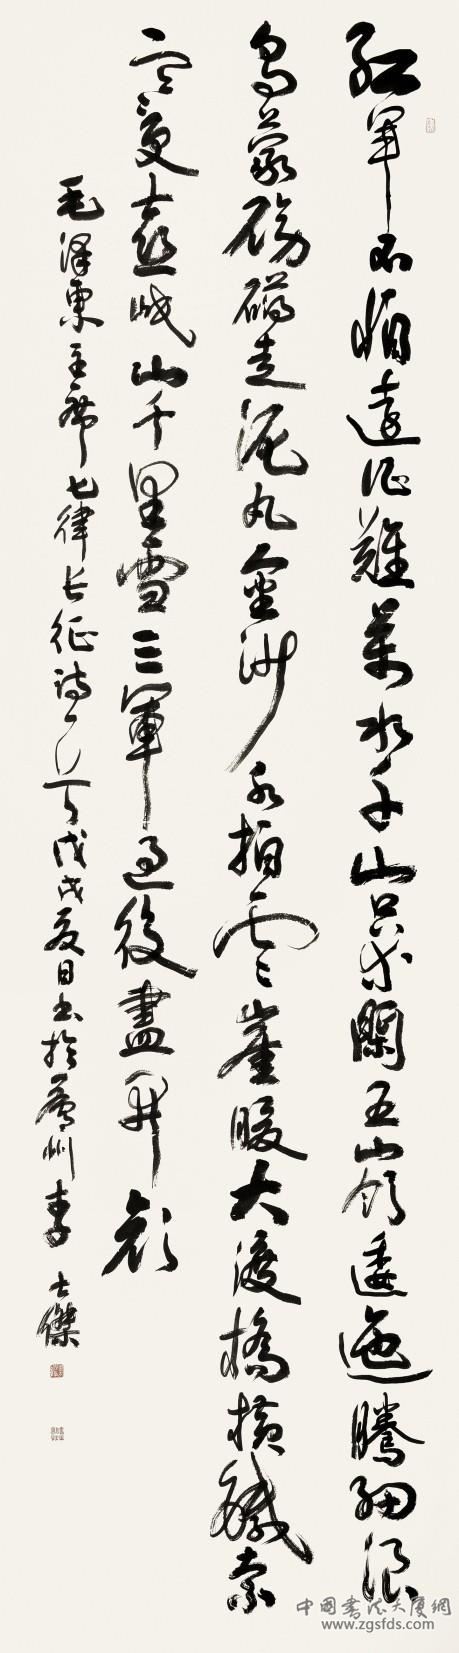 紅軍不怕遠征難萬水千山只等閑五嶺逶迤騰細浪
烏蒙磅礴走泥丸金沙水拍雲崖暖大渡橋橫鐵索
寒更喜岷山千里雪三軍過後盡開顏
毛澤東主席七律长征詩一首戊戌夏日书於廬州李士傑
中國書法大廈網
www.zgsfds.com